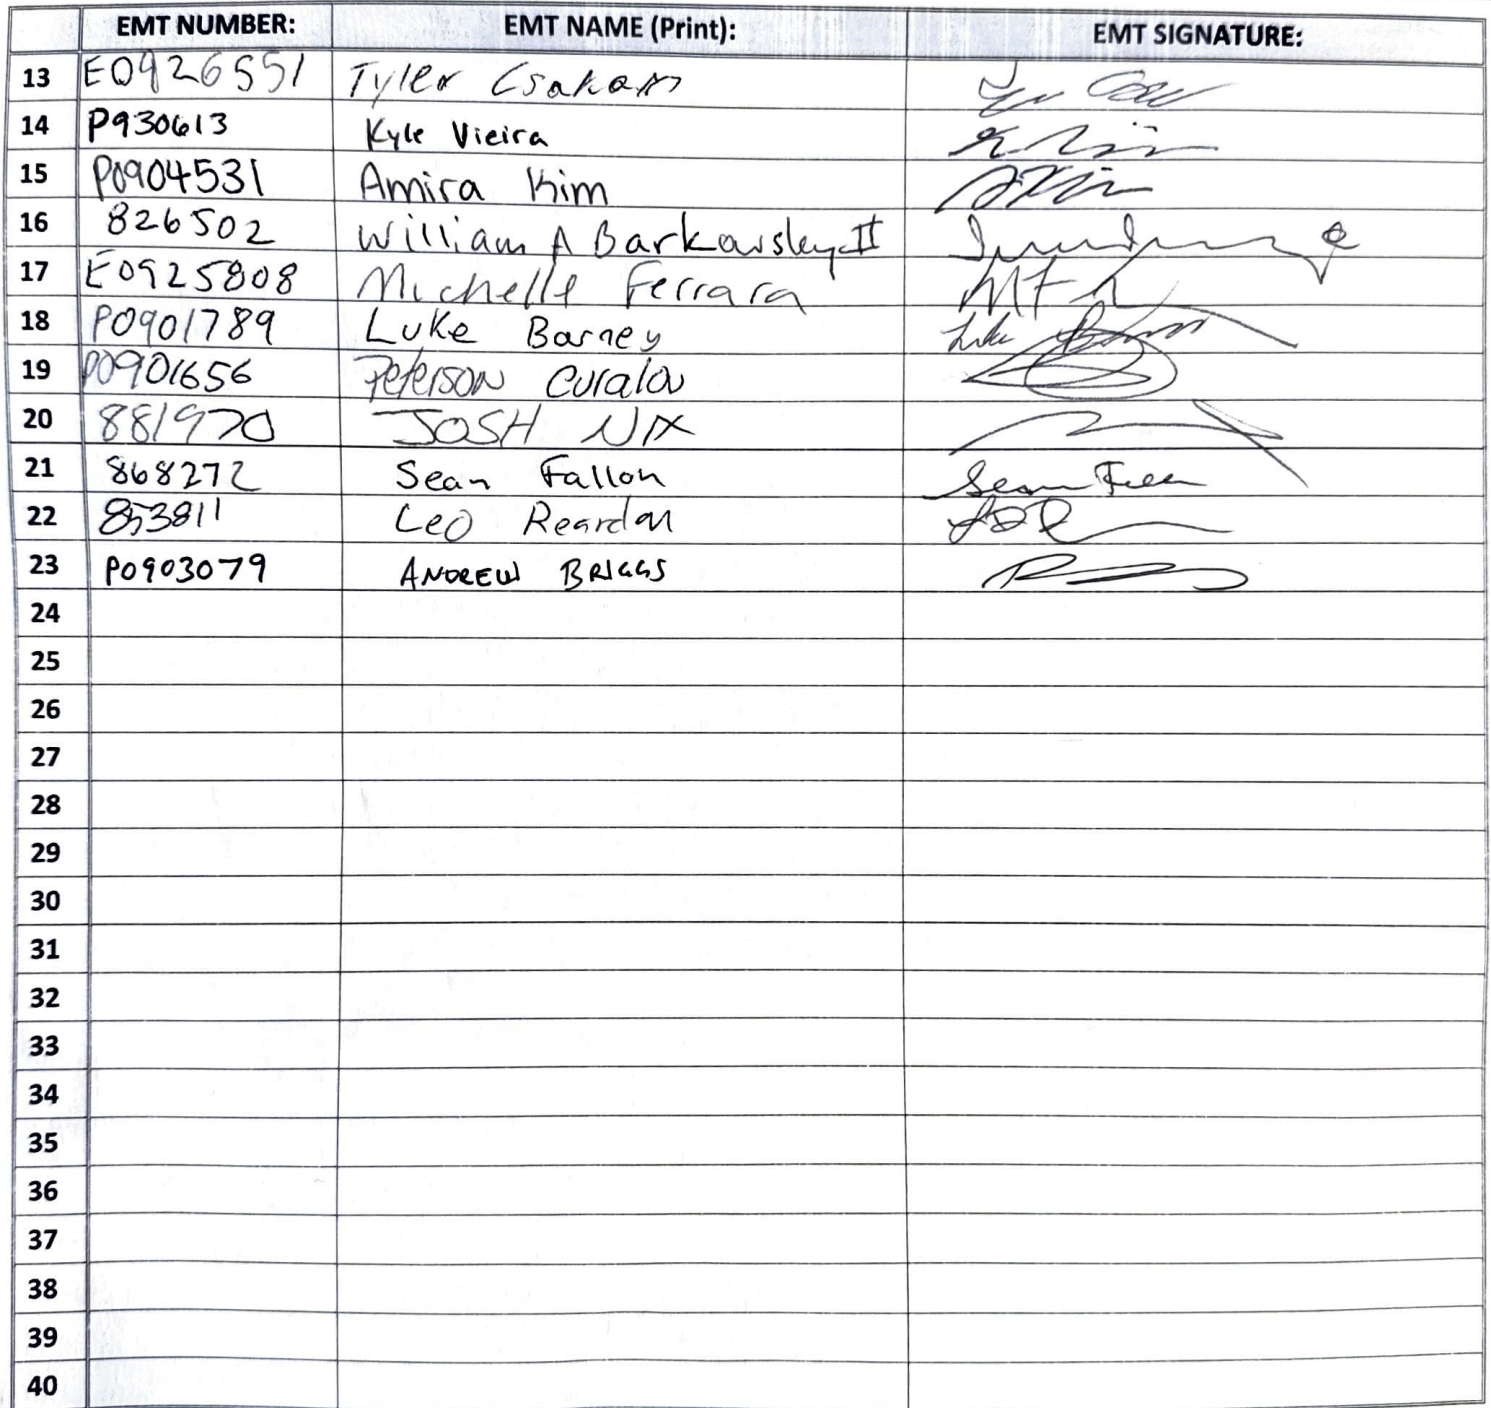 EMT NUMBER: EMT NAME (Print): EMT SIGNATURE:
13 E0926551 Tyler
14 P930613 Kyle Vieira
15 P0904531 Amira Kim
16 826502 William A Barkowsley II
17 E0925808 Michelle Ferrara
18 P0901789 Luke Barney
19 P0901656 Peterson
20 881970 JOSH NIX
21 868272 Sean Fallon
22 853811 Leo Reardon
23 P0903079 ANDREW BRIGGS
24
25
26
27
28
29
30
31
32
33
34
35
36
37
38
39
40